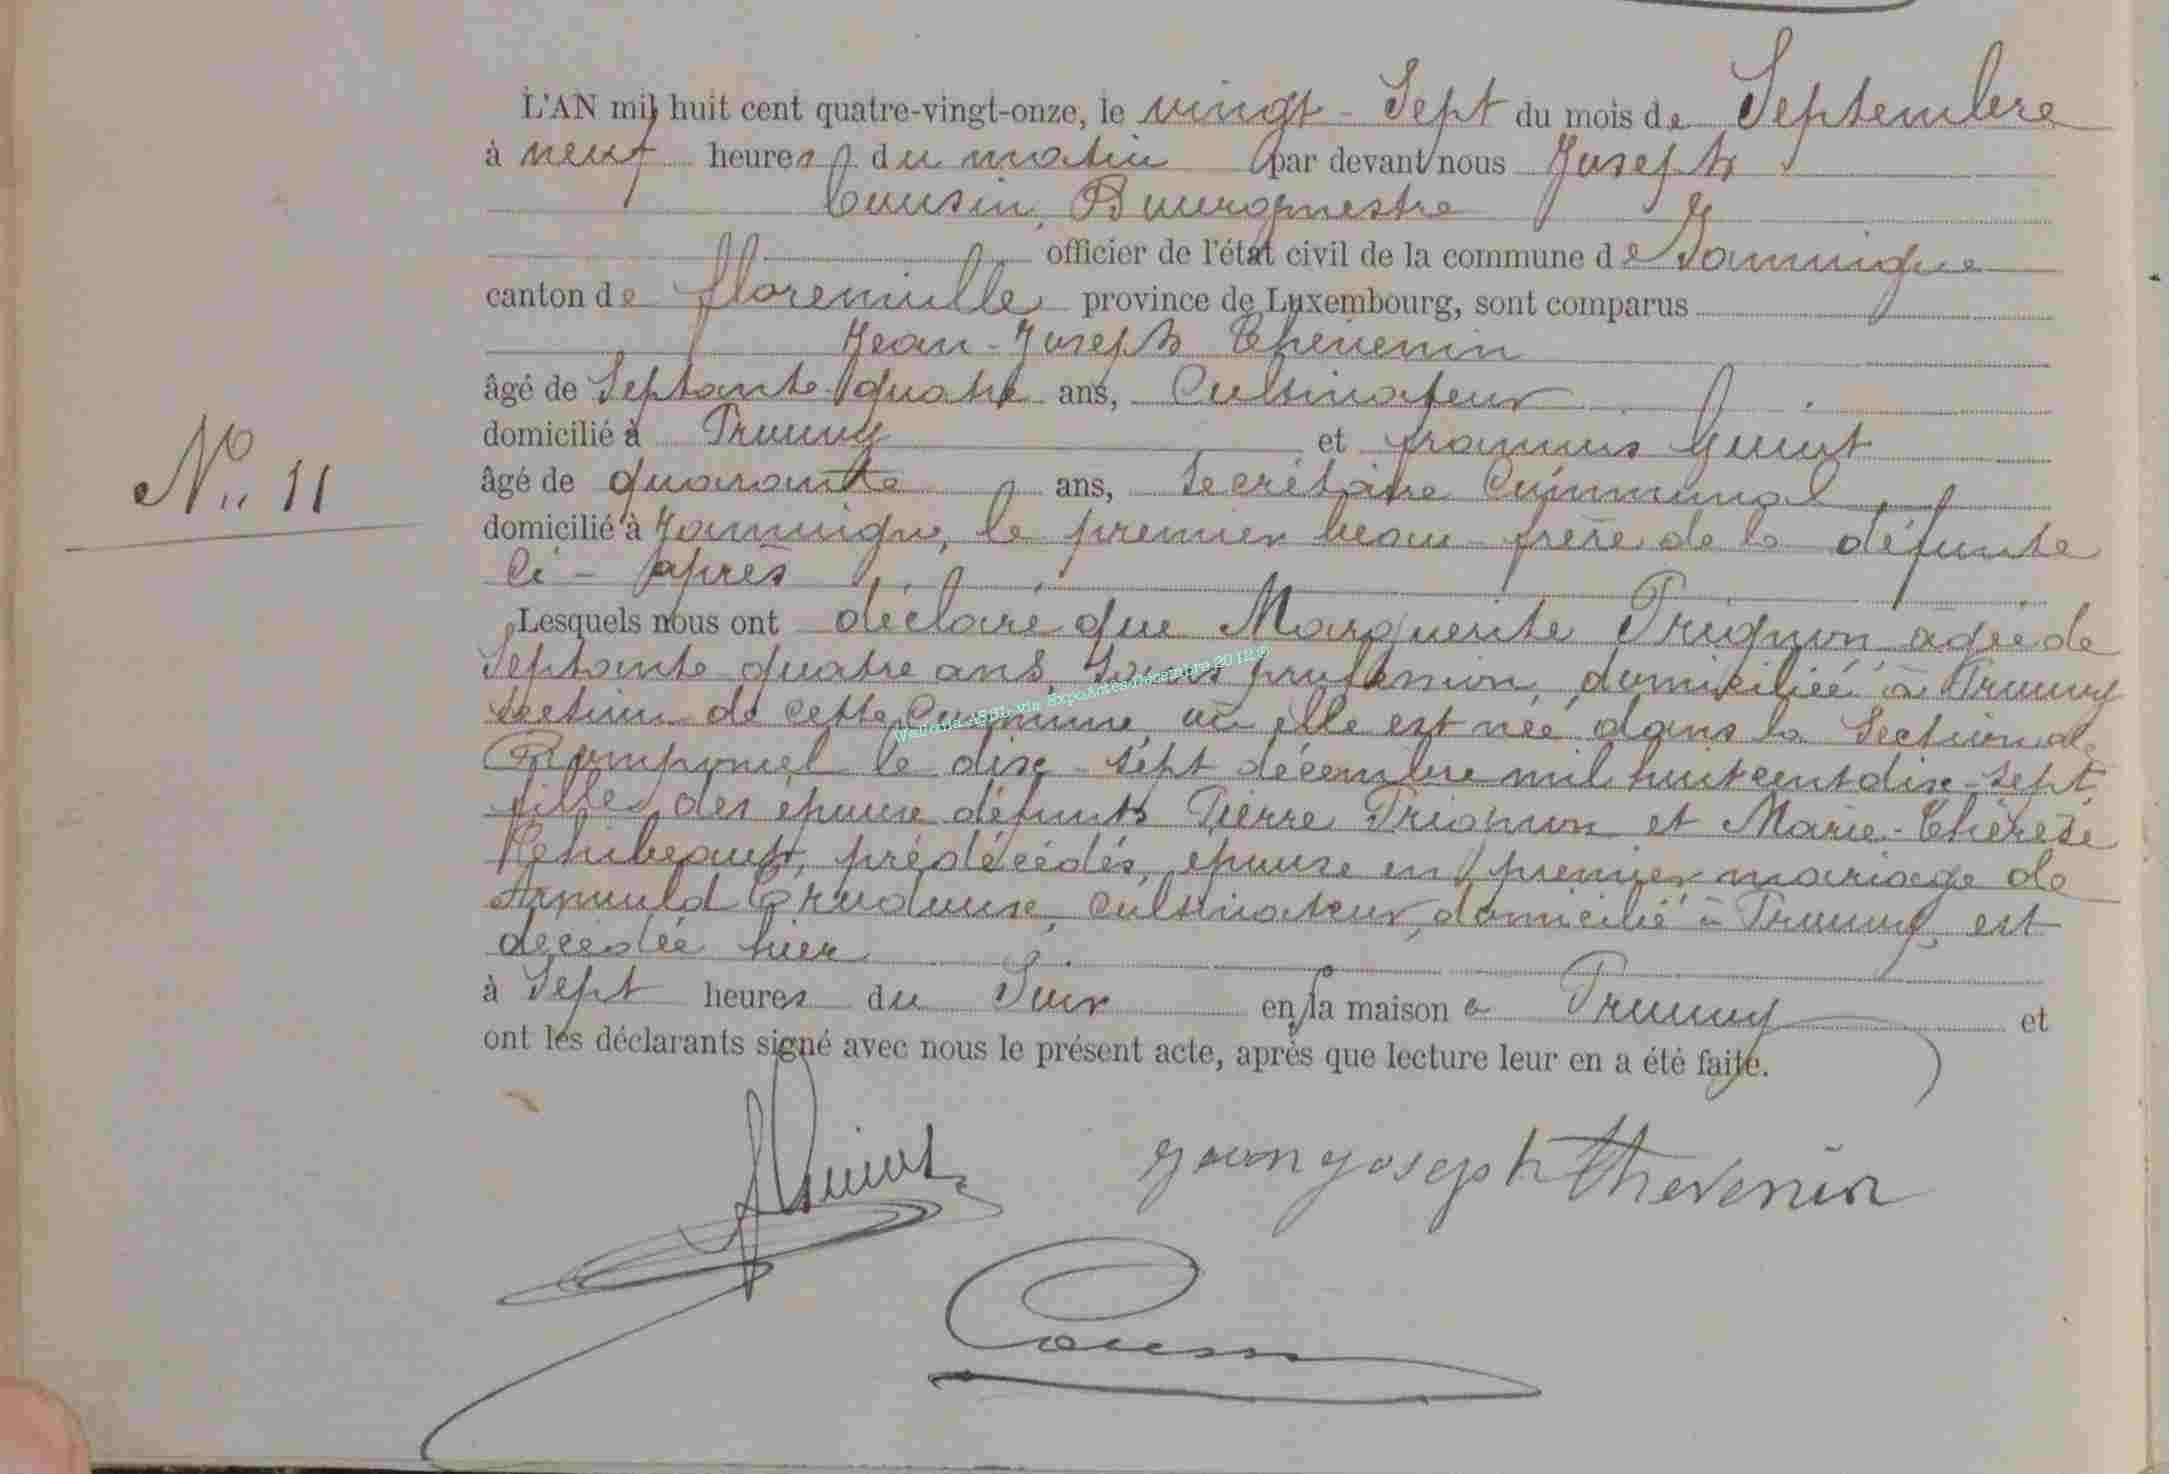 L'AN mil huit cent quatre-vingt-onze, le vingt-Sept du mois de Septembre
à neuf heures du matin par devant nous Joseph
Cousin, Bourgmestre
officier de l'état civil de la commune de Jamoigne
canton de florenville province de Luxembourg, sont comparus
Jean-Joseph Thévenin
âgé de Septante quatre ans, Cultivateur
domicilié à Prouvy et françois Guiot
âgé de quarante ans, Secrétaire Communal
domicilié à Jamoigne, le premier beau-frère de la défunte
Ci-après
Lesquels nous ont déclaré que Marguerite Prignon agée de
Septante quatre ans, Sans profession, domiciliée à Prouvy
section de cette Commune, où elle est née dans la Section de
Romponcel le dix-sept décembre mil huit cent dix-sept,
fille des époux défunts Pierre Prignon et Marie-Thérèse
prédécédés, épouse en premier mariage de
Arnould cultivateur, domicilié à Prouvy, est
décédée hier
à Sept heures du Soir en sa maison à Prouvy et
ont les déclarants signé avec nous le présent acte, après que lecture leur en a été faite.
Nº 11
Wallonia ASBL via ExpoActes Décembre 2012 ©
Guiot
jean joseph thevenin
Cousin